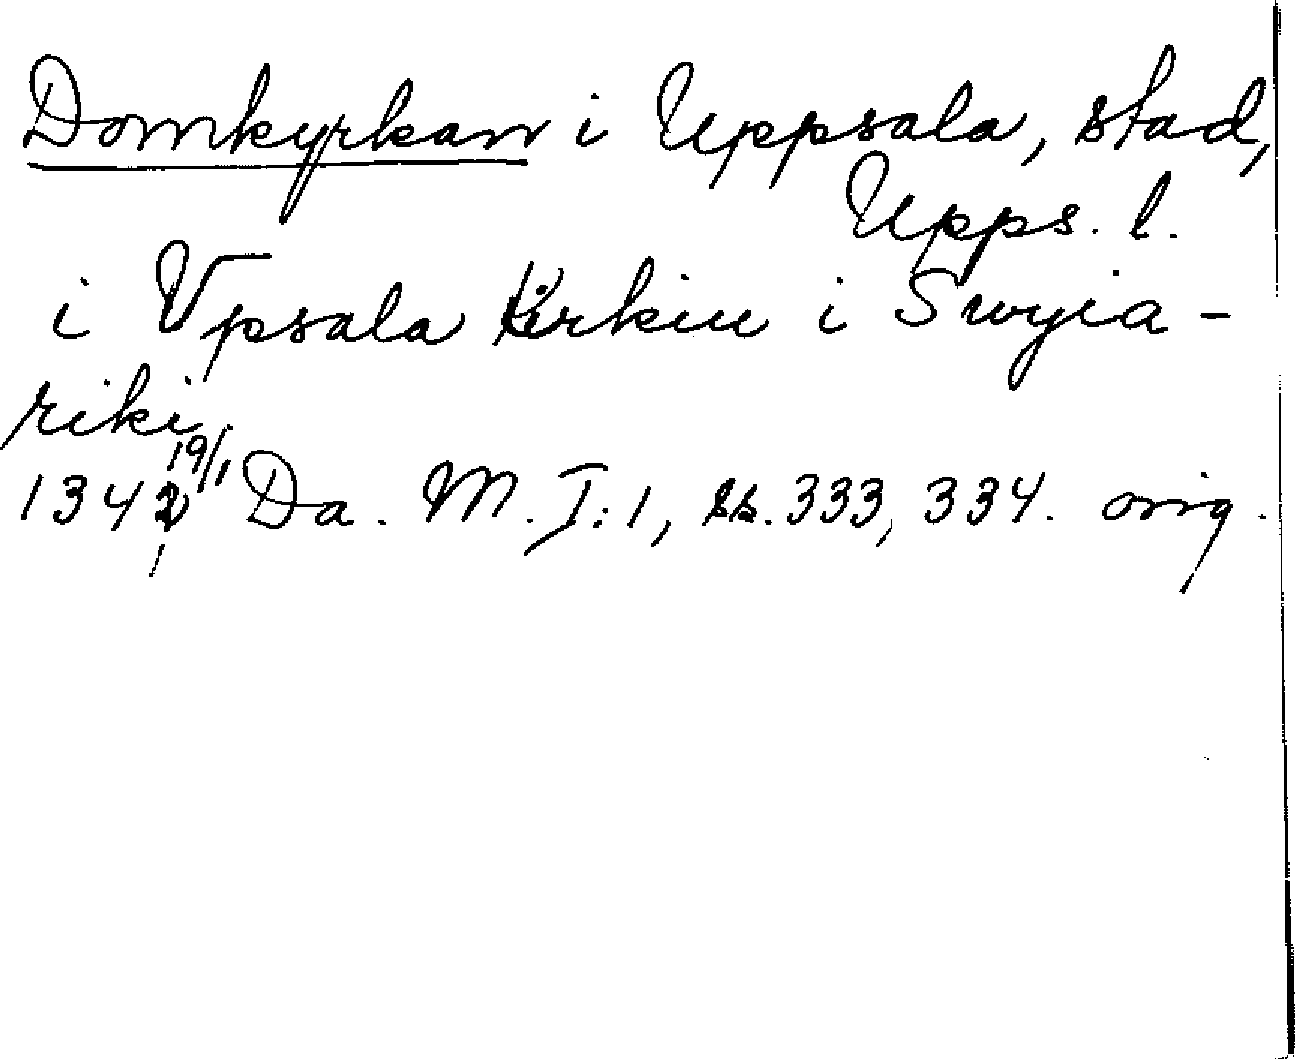 Domkyrkan i Uppsala, stad,
Upps. l.
i Vpsala kirkiu i Swyia-
riki.
1342 19/1 Da. M. I:1, ss. 333, 334. orig.